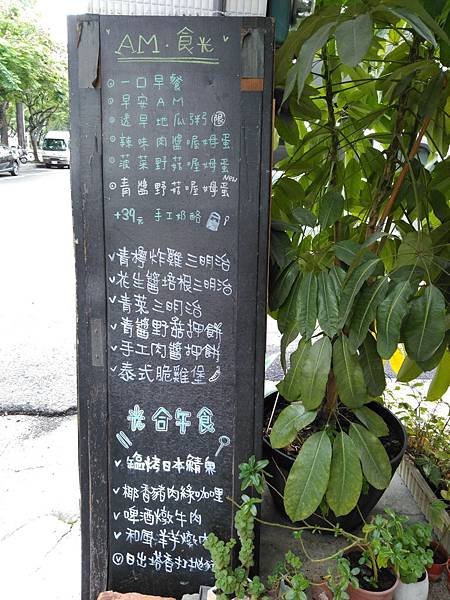 AM.食光
一口早餐
早安AM
透早地瓜粥 限
辣味肉醬喔姆蛋
菠菜野菇喔姆蛋
青醬野菇喔姆蛋 NEW
+39元 手工奶酪
青檸炸雞三明治
花生醬培根三明治
青菜三明治
青醬野菇押餅
手工肉醬押餅
泰式脆雞堡
光合午食
鹽烤日本鯖魚
椰香豬肉綠咖哩
啤酒燉牛肉
和風洋芋燉肉
日出塔香